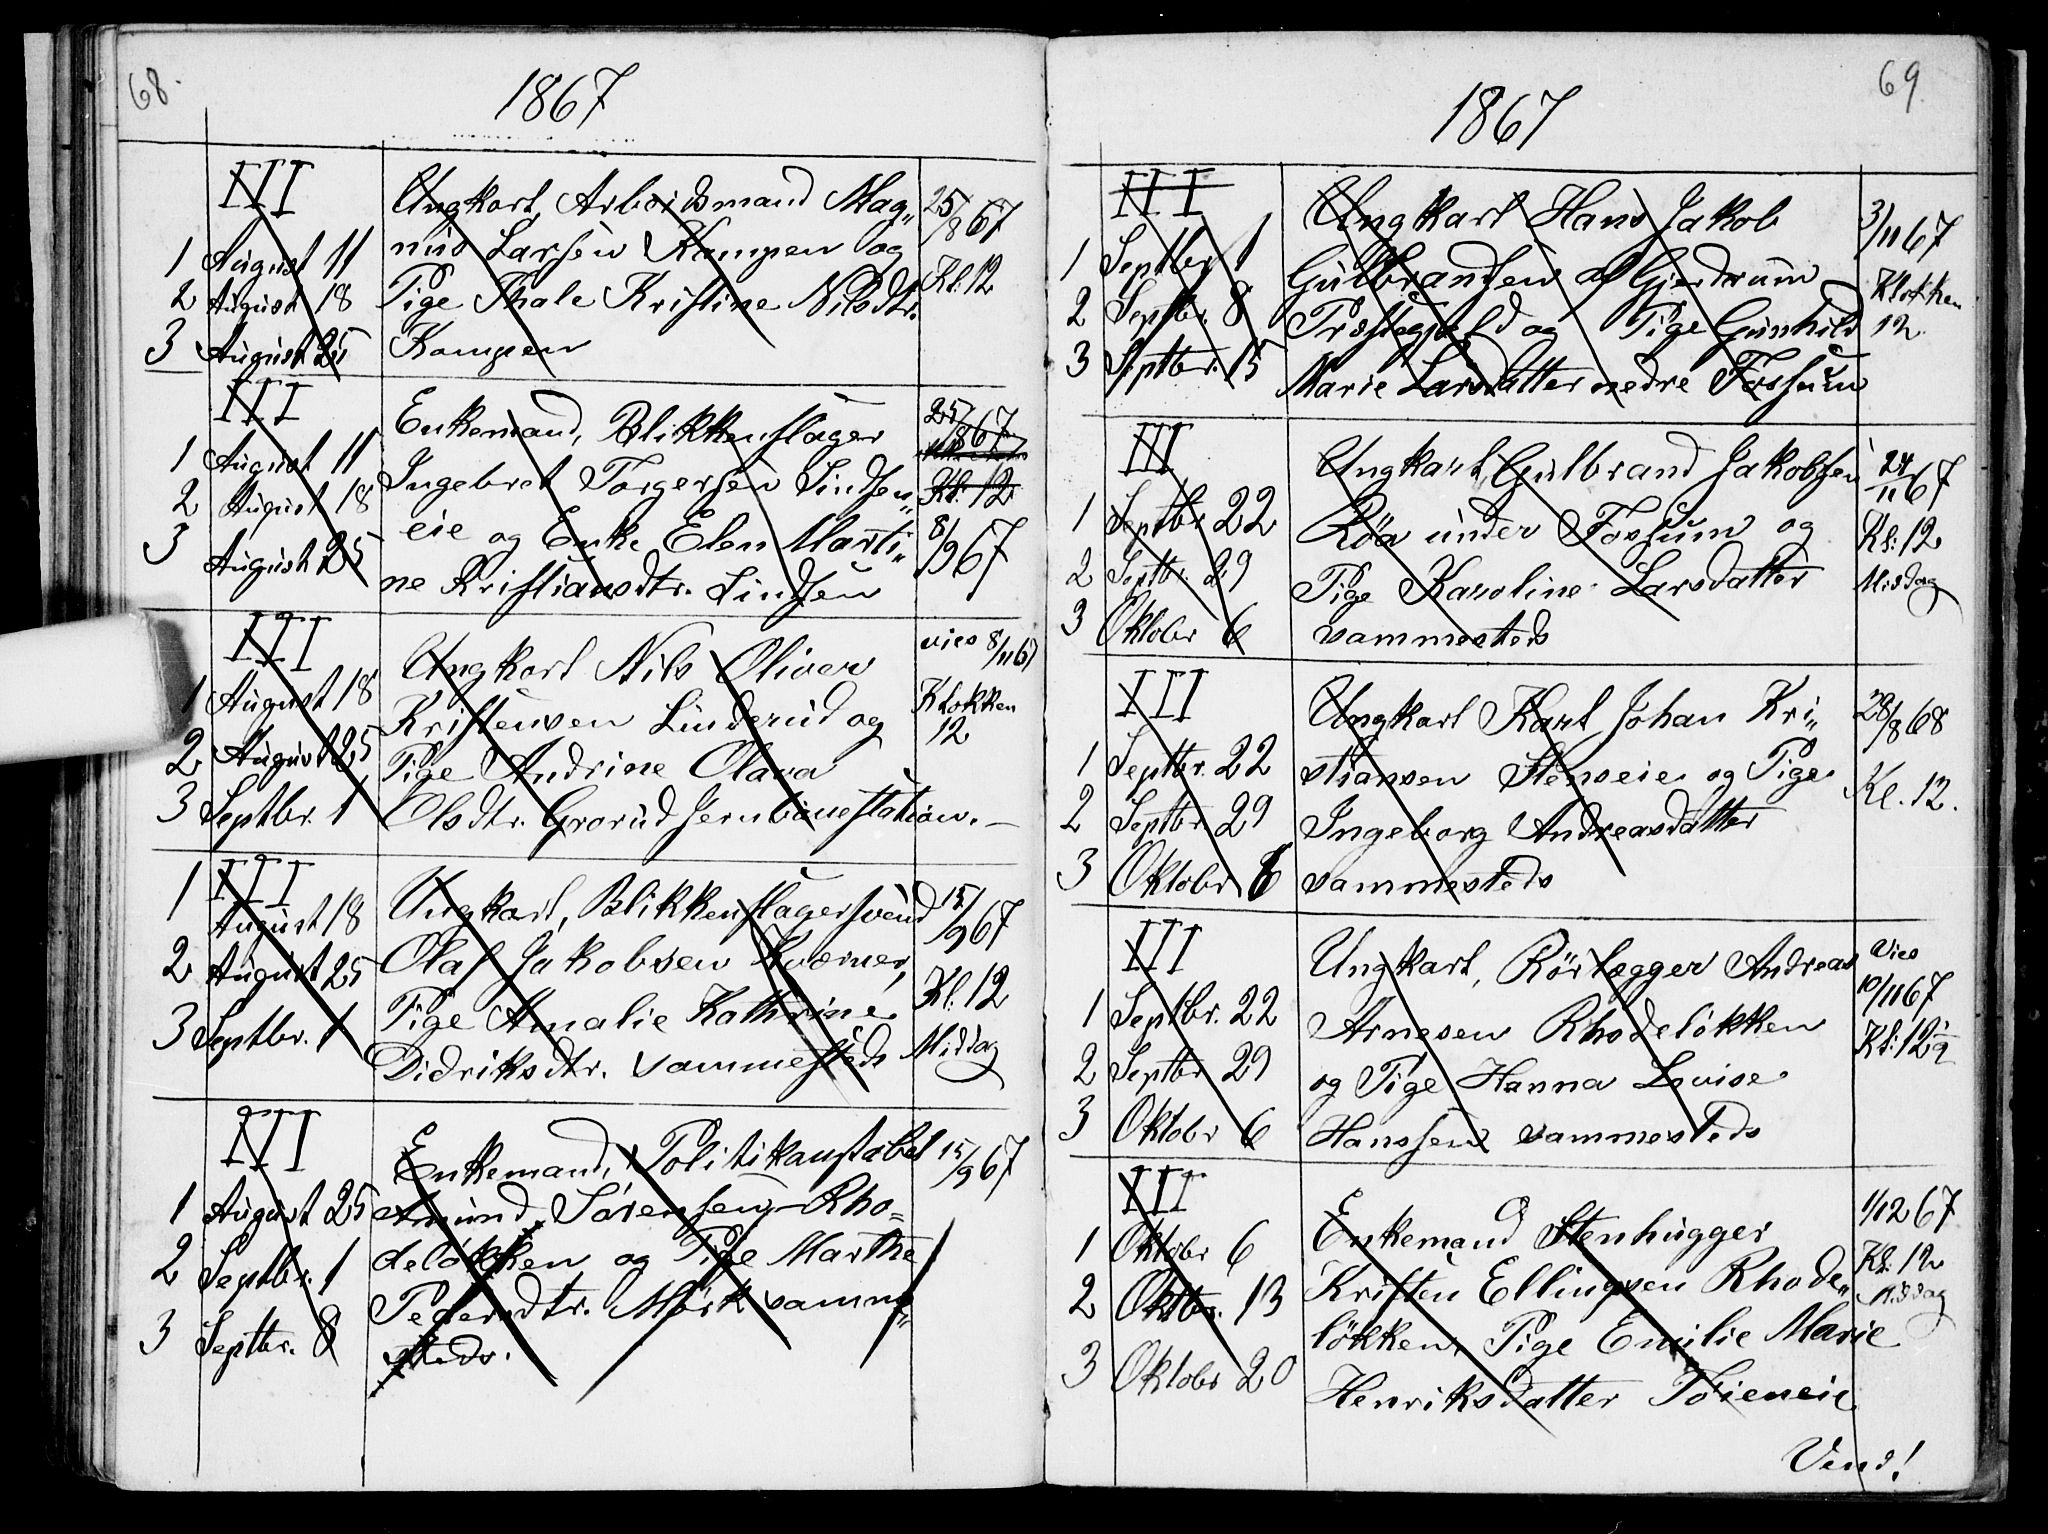 68.
1867
III
1 August 11
2 August 18
3 August 25
Ungkarl, Arbeidsmand Mag„
nus Larsen Kampen og
Pige Thale Kristine Nilsdtr.
Kampen
25/8 67
Kl. 12
III
1 August 11
2 August 18
3 August 25
Enkemand, Blikkenslager
Ingebret Torgersen Lindsen„
eie og Enke Elen Marti„
ne Kristiansdtr. Lindsen
25/8 67
Kl. 12
8/9 67
III
1 August 18
2 August 25
3 Septbr. 1
Ungkarl Nils Oliver
Kristensen Linderud og
Pige Andrine Olava
Olsdtr. Grorud Jernbanestation.
vies 8/11 67
Klokken
12
III
1 August 18
2 August 25
3 Septbr. 1
Ungkarl, Blikkenslagersvend
Olaf Jakobsen Kværner,
Pige Amalie Kathrine
Didriksdtr. sammesteds
15/9 67
Kl. 12
Middag
III
1 August 25
2 Septbr. 1
3 Septbr. 8
Enkemand, Politikonstabel
Amund Sørensen Rho=
deløkken og Pige Marthe
Pedersdtr. Mørk samme„
steds.
15/9 67
69.
1867
III
1 Septbr. 1
2 Septbr. 8
3 Septbr. 15
Ungkarl Hans Jakob
Gulbrandsen af Gjerdrum
Præstegjeld og Pige Gunhild
Marie Larsdatter nedre Fossum
3/11 67
Klokken
12.
III
1 Septbr 22
2 Septbr. 29
3 Oktobr 6
Ungkarl Gulbrand Jakobsen
Röa under Fossum og
Pige Karoline Larsdatter
sammesteds
24/11 67
Kl: 12
Middag
III
1 Septbr. 22
2 Septbr 29
3 Oktobr 6
Ungkarl Karl Johan Kri„
stiansen Stenseie og Pige
Ingeborg Andreasdatter
sammesteds
28/8 68
Kl. 12.
III
1 Septbr. 22
2 Septbr 29
3 Oktobr 6
Ungkarl, Rörlægger Andreas
Arnesen Rhodeløkken
og Pige Hanna Lovise
Hanssen sammesteds
Vies
10/11 67
Kl: 12 1/2
III
1 Oktobr 6
2 Oktbr. 13
3 Oktobr 20
Enkemand Stenhugger
Kristen Ellingsen Rhode„
løkken, Pige Emilie Marie
Henriksdatter Töieneie
1/12 67
Kl: 12
Middag
Vend!